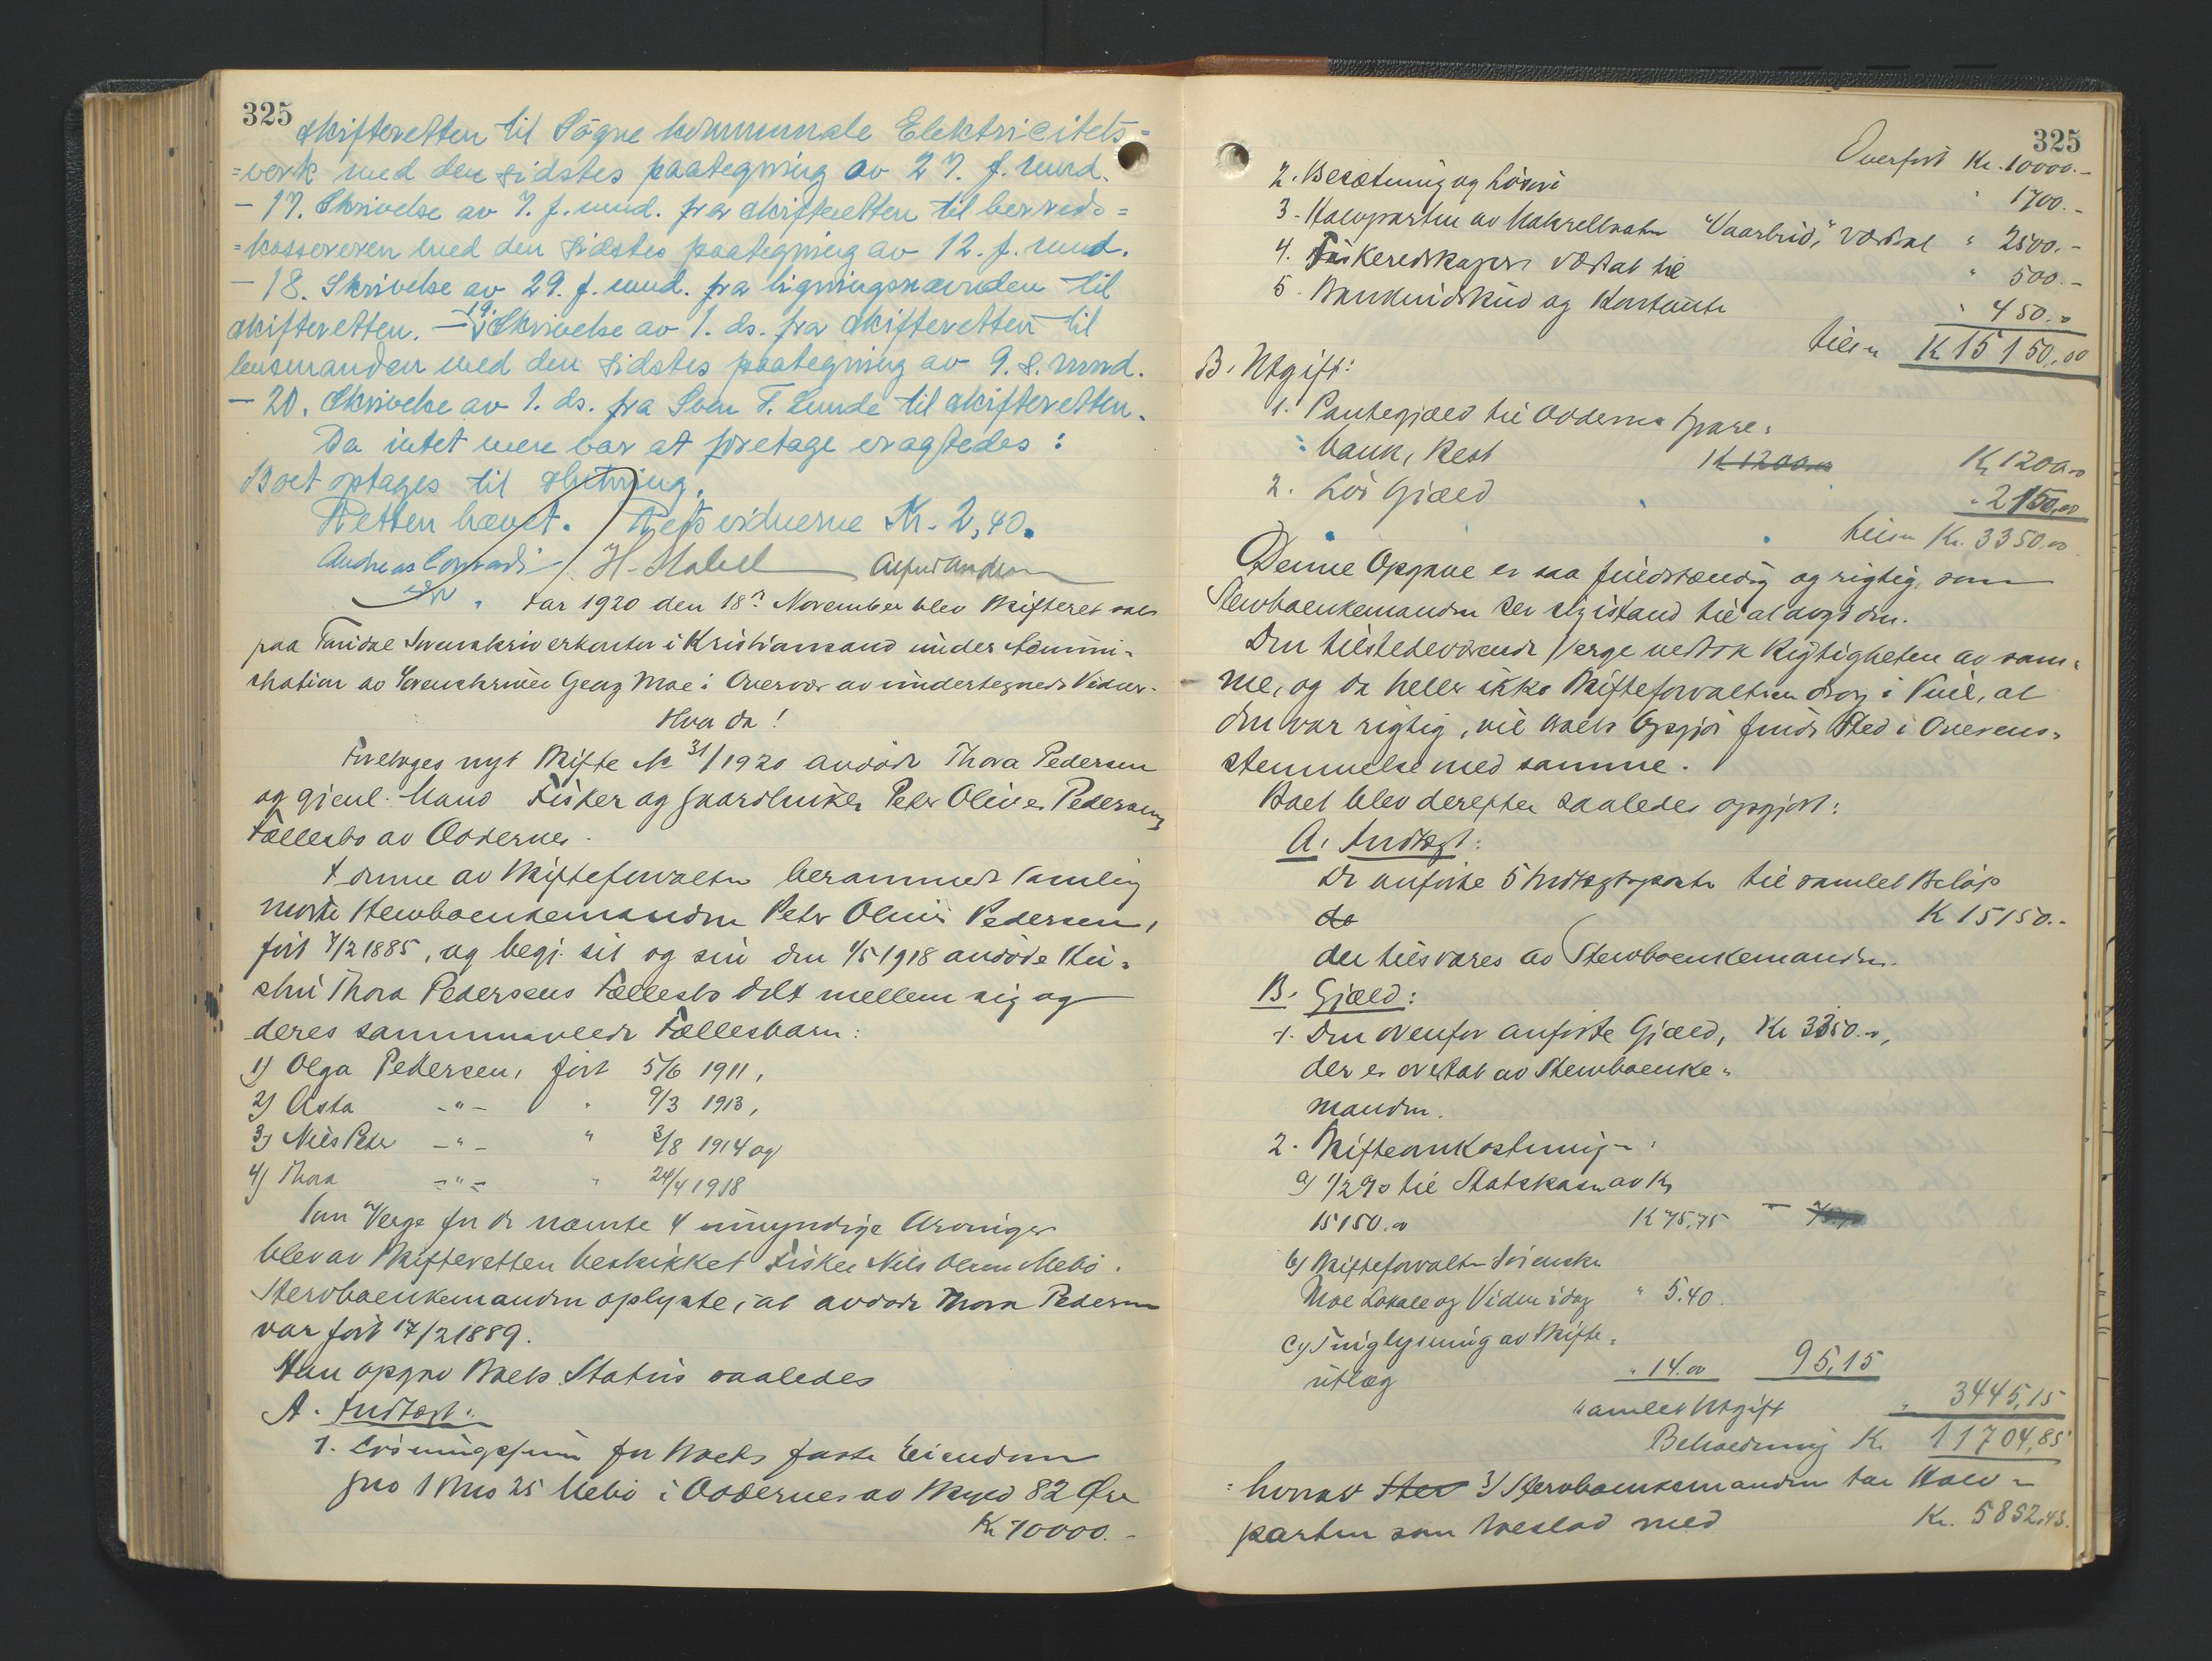 325
skifteretten til Søgne kommunale Elektricitets=
=verk med den sidstes paategning av 27. f. mnd.
- 17. Skrivelse av 7. f. mnd. fra skifteretten til herreds=
=kassereren med den sidstes paategning av 12. f. mnd.
- 18. Skrivelse av 29. f. mnd. fra ligningsnævnden til
skifteretten. - 19. Skrivelse av 1. ds. fra skifteretten til
lensmanden med den sidstes paategning av 9. s. mnd.
- 20. Skrivelse av 1. ds. fra Sven F. Lunde til skifteretten.
Da intet mere var at foretage eragtedes:
Boet optages til slutning.
Retten hævet. Retsvidnerne Kr. 2,40.
Andreas Conradi H. Stabel Alfred Andersen
Aar 1920 den 18de November blev Skifteret sat
paa Torridal Sorenskriverkontor i Kristiansand under Admini-
stration av Sorenskriver Georg Moe i Overvær av undertegnede Vidner.
Hvor da!
Foretoges nyt Skifte No 31/1920 avdøde Thora Pedersen
og gjenl. Mand Fisker og Gaardbruker Peter Oliver Pedersens
Fællesbo av Oddernes.
I denne av Skifteforvalteren berammede Samling
møtte Stervboenkemanden Peter Oliver Pedersen,
født 4/2 1885, og begj. sit og sin den 1/5 1918 avdøde Hu-
stru Thora Pedersens Fællesbo delt mellem sig og
deres sammenavlede Fællesbarn:
1) Olga Pedersen, født 5/6 1911,
2) Asta -"- " 9/3 1913,
3) Nils Peter -"- " 3/8 1914 og
4) Thora -"- " 24/4 1918
Som Verge for de nævnte 4 umyndige Arvinger
blev av Skifteretten beskikket Fisker Nils Olsen Mebø.
Stervboenkemanden oplyste, at avdøde Thora Pedersen
var født 17/2 1889.
Han opgav Boets Status saaledes
A. Indtægt:
1. Løsningssum for Boets faste Eiendom
Gno 1 Bno 25 Mebø i Oddernes av Skyld 82 Øre
Kr. 10000.-
325
Overført Kr. 10000.-
2. Besætning og Løsøre " 1700.-
3. Halvparten av Makrellskøiten "Vaarbud", værdsat " 2500.-
4. Fiskeredskaper værdsat til " 500.-
5. Bankindskud og Kontanter " 450.00
tilsm K 15150,00
B. Utgift:
1. Pantegjæld til Oddernes Spare=
=bank, Rest K 1200.00 K 1200.00
2. Løs Gjæld " 2150,00
tilsm Kr. 3350.00
Denne Opgave er saa fuldstændig og rigtig, som
Stervboenkemanden ser sig istand til at avgi den.
Den tilstedeværende Verge vedtok Rigtigheten av sam-
me, og da heller ikke Skifteforvalteren drog i Tvil, at
den var rigtig, vil Boets Opgjør finde Sted i Overens-
stemmelse med samme.
Boet blev derefter saaledes opgjort:
A. Indtægt:
De anførte 5 Indtægtsposter til samlet Beløp
de K 15150.-
der tilsvares av Stervboenkemanden.
B. Gjæld:
1. Den ovenfor anførte Gjæld, Kr 3350.00,
der er overtat av Stervboenke-
manden.
2. Skifteomkostninger:
a) 1/2 % til Statskassen av Kr
15150.00 K 75.75
b) Skifteforvalter Sorenskr.
Moe Lokale og Vidner idag " 5.40.
c) Tinglysning av Skifte-
utlæg " 14.00 95,15
samlet Utgift " 3445,15
Beholdning K. 11704,85
hvorav Ster 3/ Stervboenkemanden tar Halv-
parten som Boeslod med Kr. 5852.43.